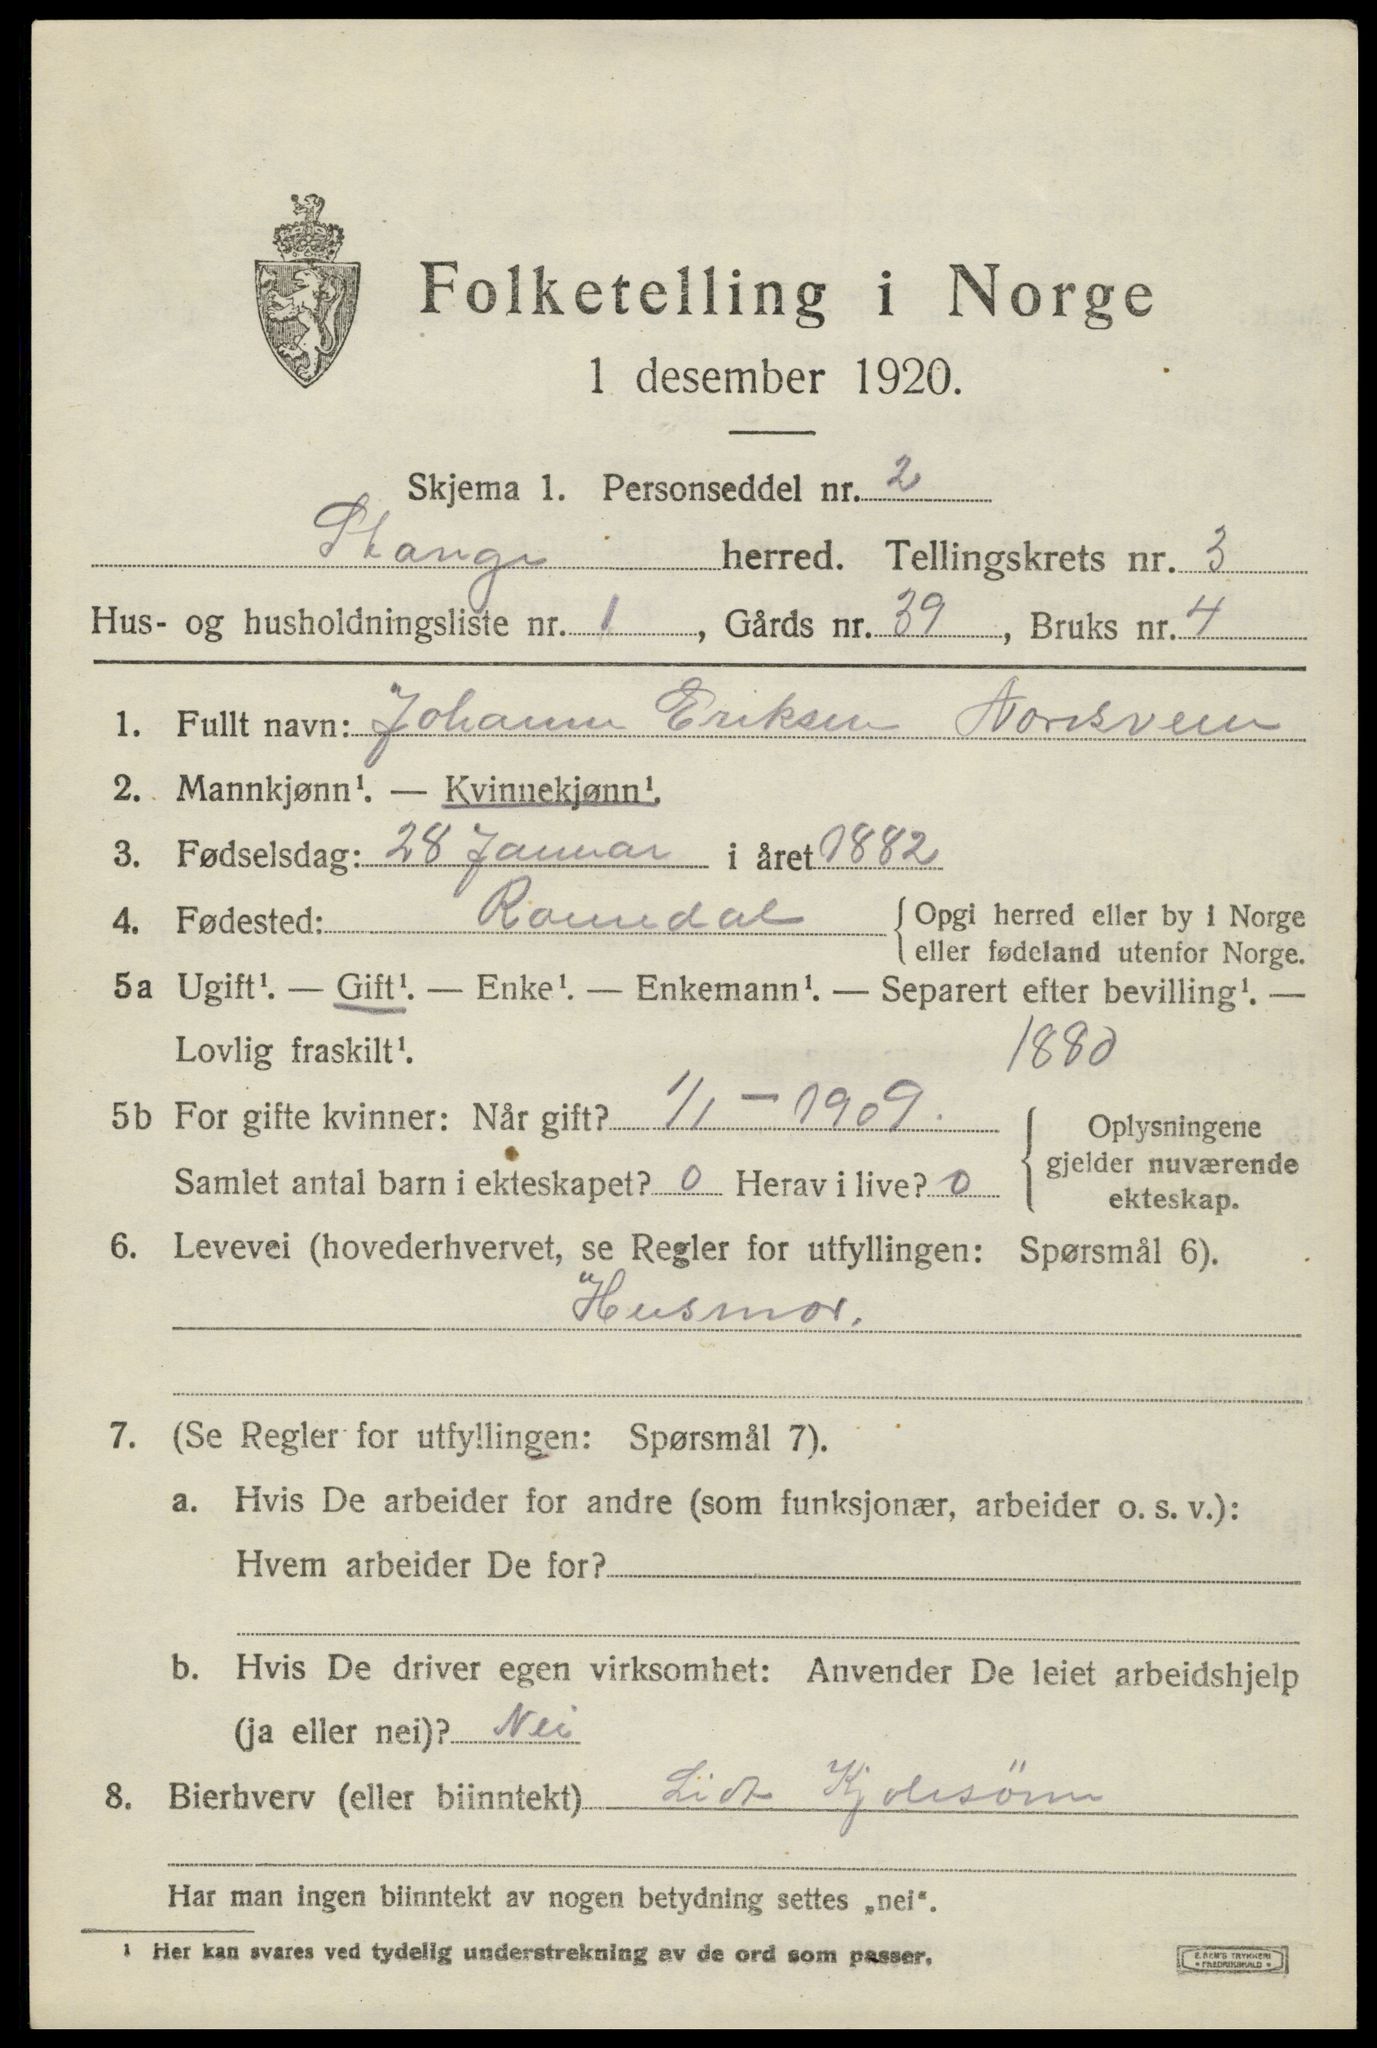 Folketelling i Norge
1 desember 1920.
Skjema 1. Personseddel nr. 2
Stange herred. Tellingskrets nr. 3
Hus- og husholdningsliste nr. 1, Gårds nr. 39, Bruks nr. 4
1. Fullt navn: Johanne Eriksen Nordsveen
2. Mannkjønn¹. — Kvinnekjønn¹.
3. Fødselsdag: 28 Januar i året 1882
4. Fødested: Romedal { Opgi herred eller by i Norge
eller fødeland utenfor Norge.
5a Ugift¹. — Gift¹. — Enke¹. — Enkemann¹. — Separert efter bevilling¹. —
Lovlig fraskilt¹. 1880
5b For gifte kvinner: Når gift? 1/1 – 1909. { Oplysningene
gjelder nuværende
ekteskap.
Samlet antal barn i ekteskapet? 0 Herav i live? 0
6. Levevei (hovederhvervet, se Regler for utfyllingen: Spørsmål 6).
Husmor.
7. (Se Regler for utfyllingen: Spørsmål 7).
a. Hvis De arbeider for andre (som funksjonær, arbeider o. s. v.):
Hvem arbeider De for?
b. Hvis De driver egen virksomhet: Anvender De leiet arbeidshjelp
(ja eller nei)? Nei
8. Bierhverv (eller biinntekt) Lidt Kjolesöm
Har man ingen biinntekt av nogen betydning settes „nei“.
¹ Her kan svares ved tydelig understrekning av de ord som passer.
E. SEM'S TRYKKERI
• FREDRIKSHALD •